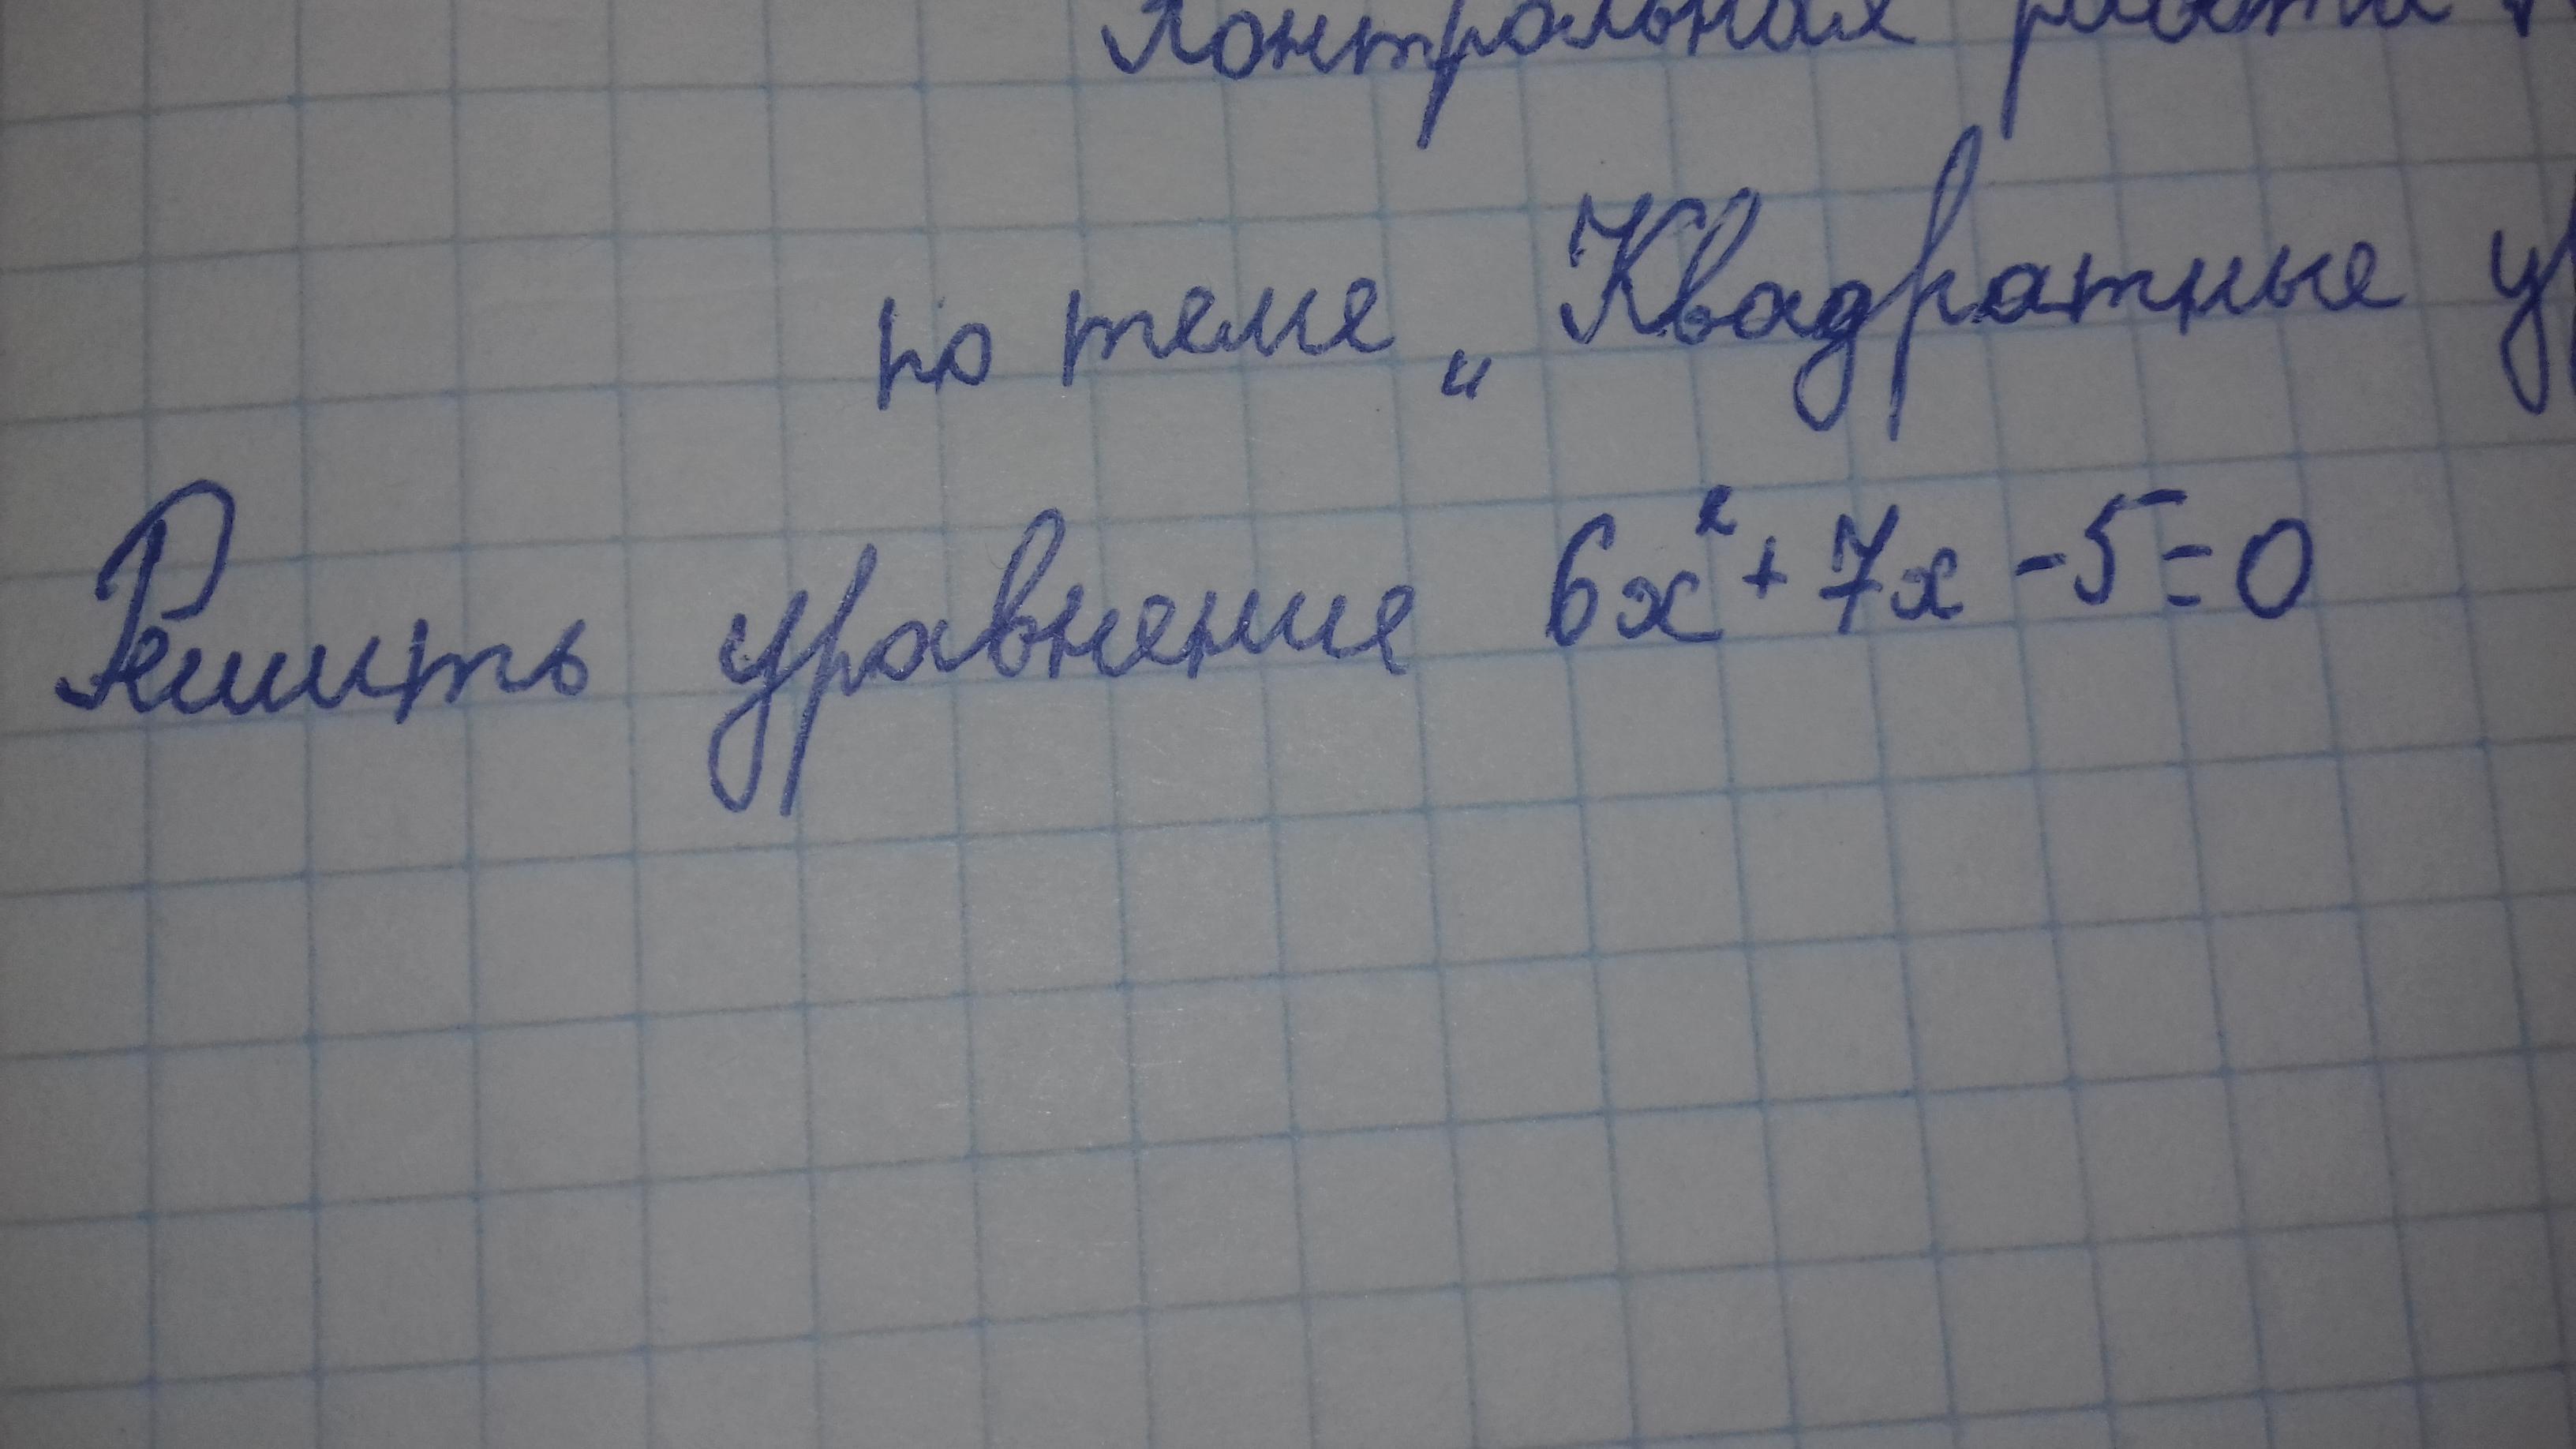 Контрольная работа
по теме „Квадратные ур
Решить уравнение 6x²+7x-5=0